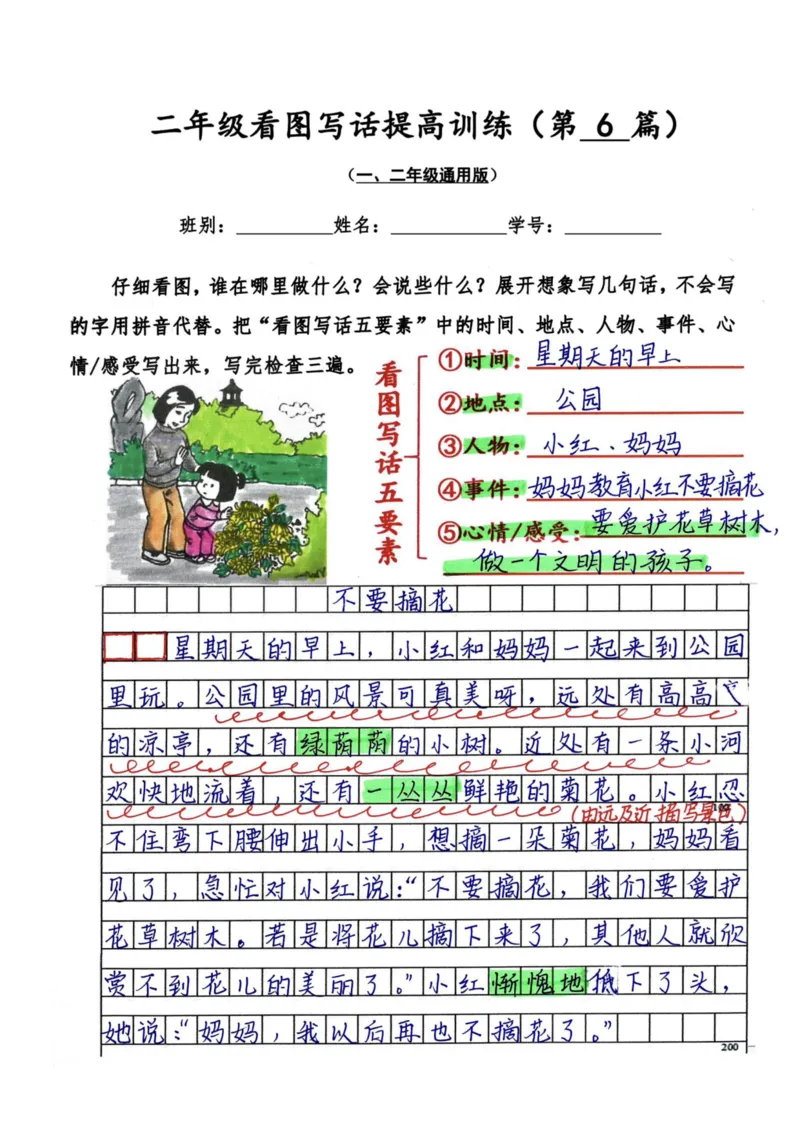 二年级看图写话提高训练（第 6 篇）
（一、二年级通用版）
班别：__________姓名：____________学号：__________
仔细看图，谁在哪里做什么？会说些什么？展开想象写几句话，不会写
的字用拼音代替。把“看图写话五要素”中的时间、地点、人物、事件、心
情/感受写出来，写完检查三遍。
看图写话五要素
①时间：星期天的早上
②地点：公园
③人物：小红、妈妈
④事件：妈妈教育小红不要摘花
⑤心情/感受：要爱护花草树木，
做一个文明的孩子。
不要摘花
星期天的早上，小红和妈妈一起来到公园
里玩。公园里的风景可真美呀，远处有高高
的凉亭，还有绿荫荫的小树。近处有一条小河
欢快地流着，还有一丛丛鲜艳的菊花。小红忍
（由远及近描写景色）
不住弯下腰伸出小手，想摘一朵菊花，妈妈看
见了，急忙对小红说：“不要摘花，我们要爱护
花草树木。若是将花儿摘下来了，其他人就欣
赏不到花儿的美丽了。”小红惭愧地低下了头，
她说：“妈妈，我以后再也不摘花了。”
200